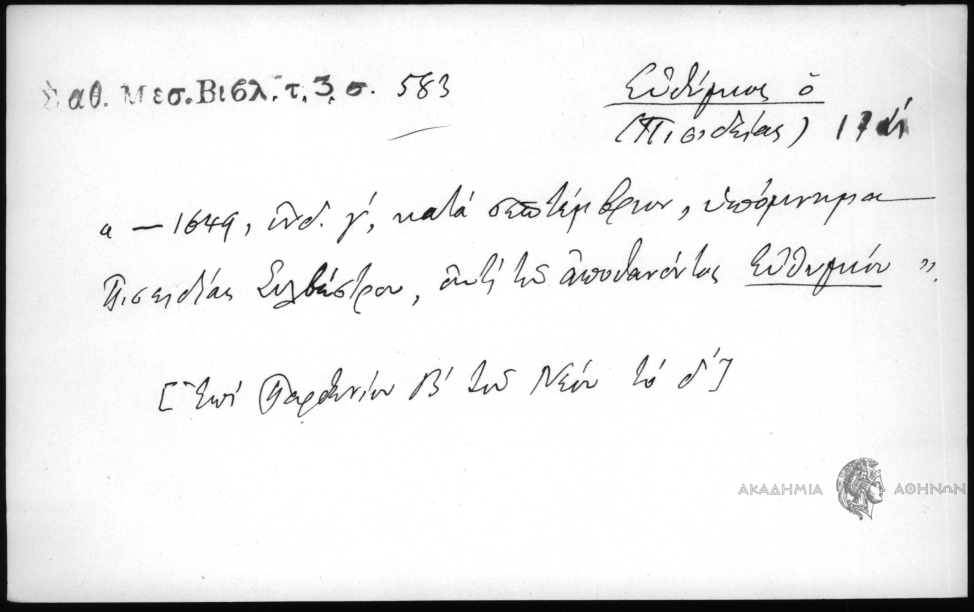 Σαθ. Μεσ. Βιβλ. τ. 3, σ. 583
Εὐθύμιος ὁ
(Πισιδείας) 17
« — 1649, ἰνδ. γ', κατά σεπτέμβριον, ὑπόμνημα
Πισειδίας Σιλβέστρου, ἀντί τοῦ ἀποθανόντος Εὐθυμίου ».
[Ἐπί Παρθενίου Β' τοῦ Νέου τό β']
ΑΚΑΔΗΜΙΑ ΑΘΗΝΩΝ